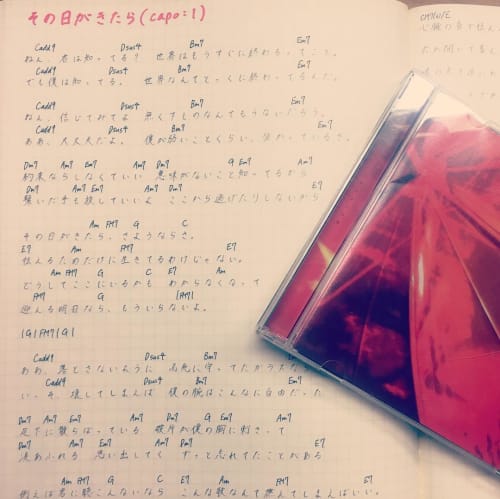 その日がきたら(capo:1)
Cadd9 Dsus4 Bm7 Em7
ねぇ、君は知ってる? 世界はもうすぐに終わるってこと。
Cadd9 Dsus4 Bm7 Em7
でも僕は知ってる。 世界なんてとっくに終わってるんだ。
Cadd9 Dsus4 Bm7 Em7
ねぇ、信じてみてよ 無くすものなんてもうないだろう。
Cadd9 Dsus4 Bm7 Em7
ああ、大丈夫だよ。 僕が弱いことくらい、分かっているさ。
Dm7 Am7 Em7 Am7 Dm7 G Em7 Am7
約束ならしなくていい 意味がないこと知ってるから
Dm7 Am7 Em7 Am7 Dm7 E7
繋いだ手も離していいよ ここから逃げたりしないから
Am FM7 G C
その日がきたら、さようならさ。
E7 Am FM7 E7
怯えるためだけに生きてるわけじゃない。
Am FM7 G C E7 Am
どうしてここにいるかも わからなくなって
FM7 G |FM7|
迎える明日なら、もういらないよ。
|G|FM7|G|
Cadd9 Dsus4 Bm7 Em7
ああ、落とさないように 必死に守ってたガラス
Cadd9 Dsus4 Bm7 Em7
いっそ、壊してしまえば 僕の腕はこんなに自由だった
Dm7 Am7 Em7 Am7 Dm7 G Em7 Am7
足下に散らばっている 破片が僕の胸に刺さって
Dm7 Am7 Em7 Am7 Dm7 E7
涙あふれる 思い出してく ずっと忘れてたことがある
Am FM7 G C E7 Am FM7 E7
例えば君に聴こんないなら こんな歌なんて燃えてしまえばいい。